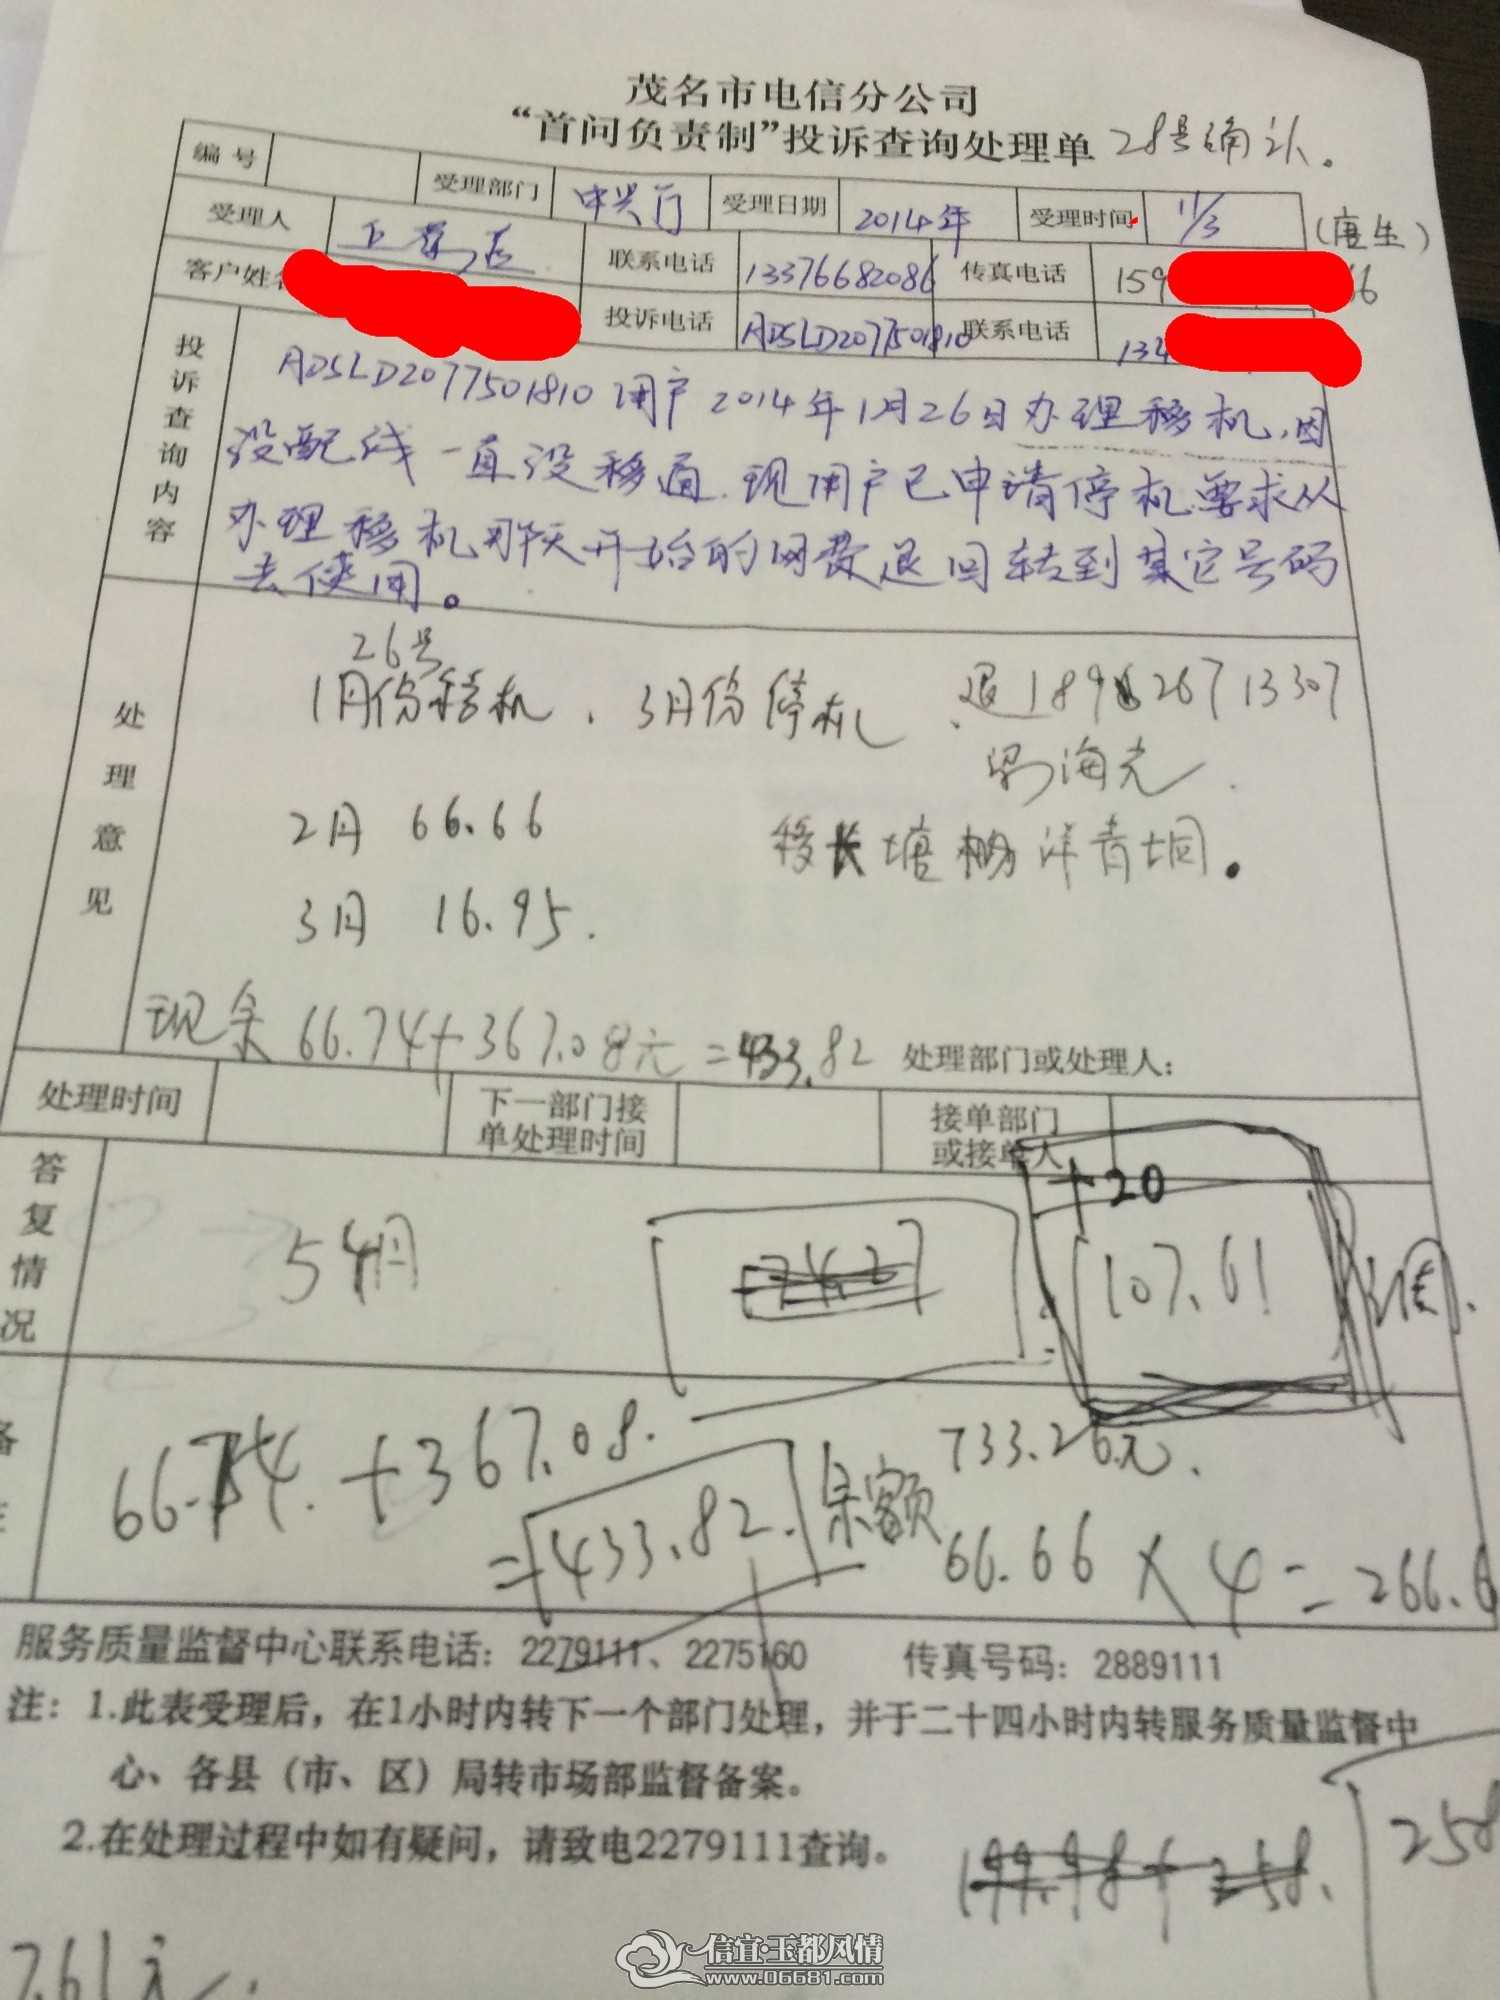 茂名市电信分公司
“首问负责制”投诉查询处理单 28号确认。
编号 受理部门 中兴厅 受理日期 2014年 受理时间 11/3
受理人 联系电话 13376682086 传真电话 159 66 (唐生)
客户姓名 投诉电话 ADSLD2077501810 联系电话 134
投诉查询内容
ADSLD2077501810用户2014年1月26日办理移机,因
没配线一直没移通.现用户已申请停机,要求从
办理移机那天开始的网费退回转到其它号码
去使用。
处理意见
26号
1月份移机、3月份停机 退 26713307
海光.
2月 66.66
移长塘 洋青垌。
3月 16.95.
现余66.74+367.08元=433.82 处理部门或处理人:
处理时间 下一部门接单处理时间 接单部门或接单人
答复情况
+20
5 4月
107.61
66.74.+367.08.
=433.82. 余额 733.26元.
66.66×4=266.6
服务质量监督中心联系电话: 2279111、2275160 传真号码: 2889111
注: 1.此表受理后,在1小时内转下一个部门处理,并于二十四小时内转服务质量监督中
心、各县(市、区)局转市场部监督备案。
2.在处理过程中如有疑问,请致电2279111查询。
199.98+258.
258
7.61元.
信宜·玉都风情
www.06681.com